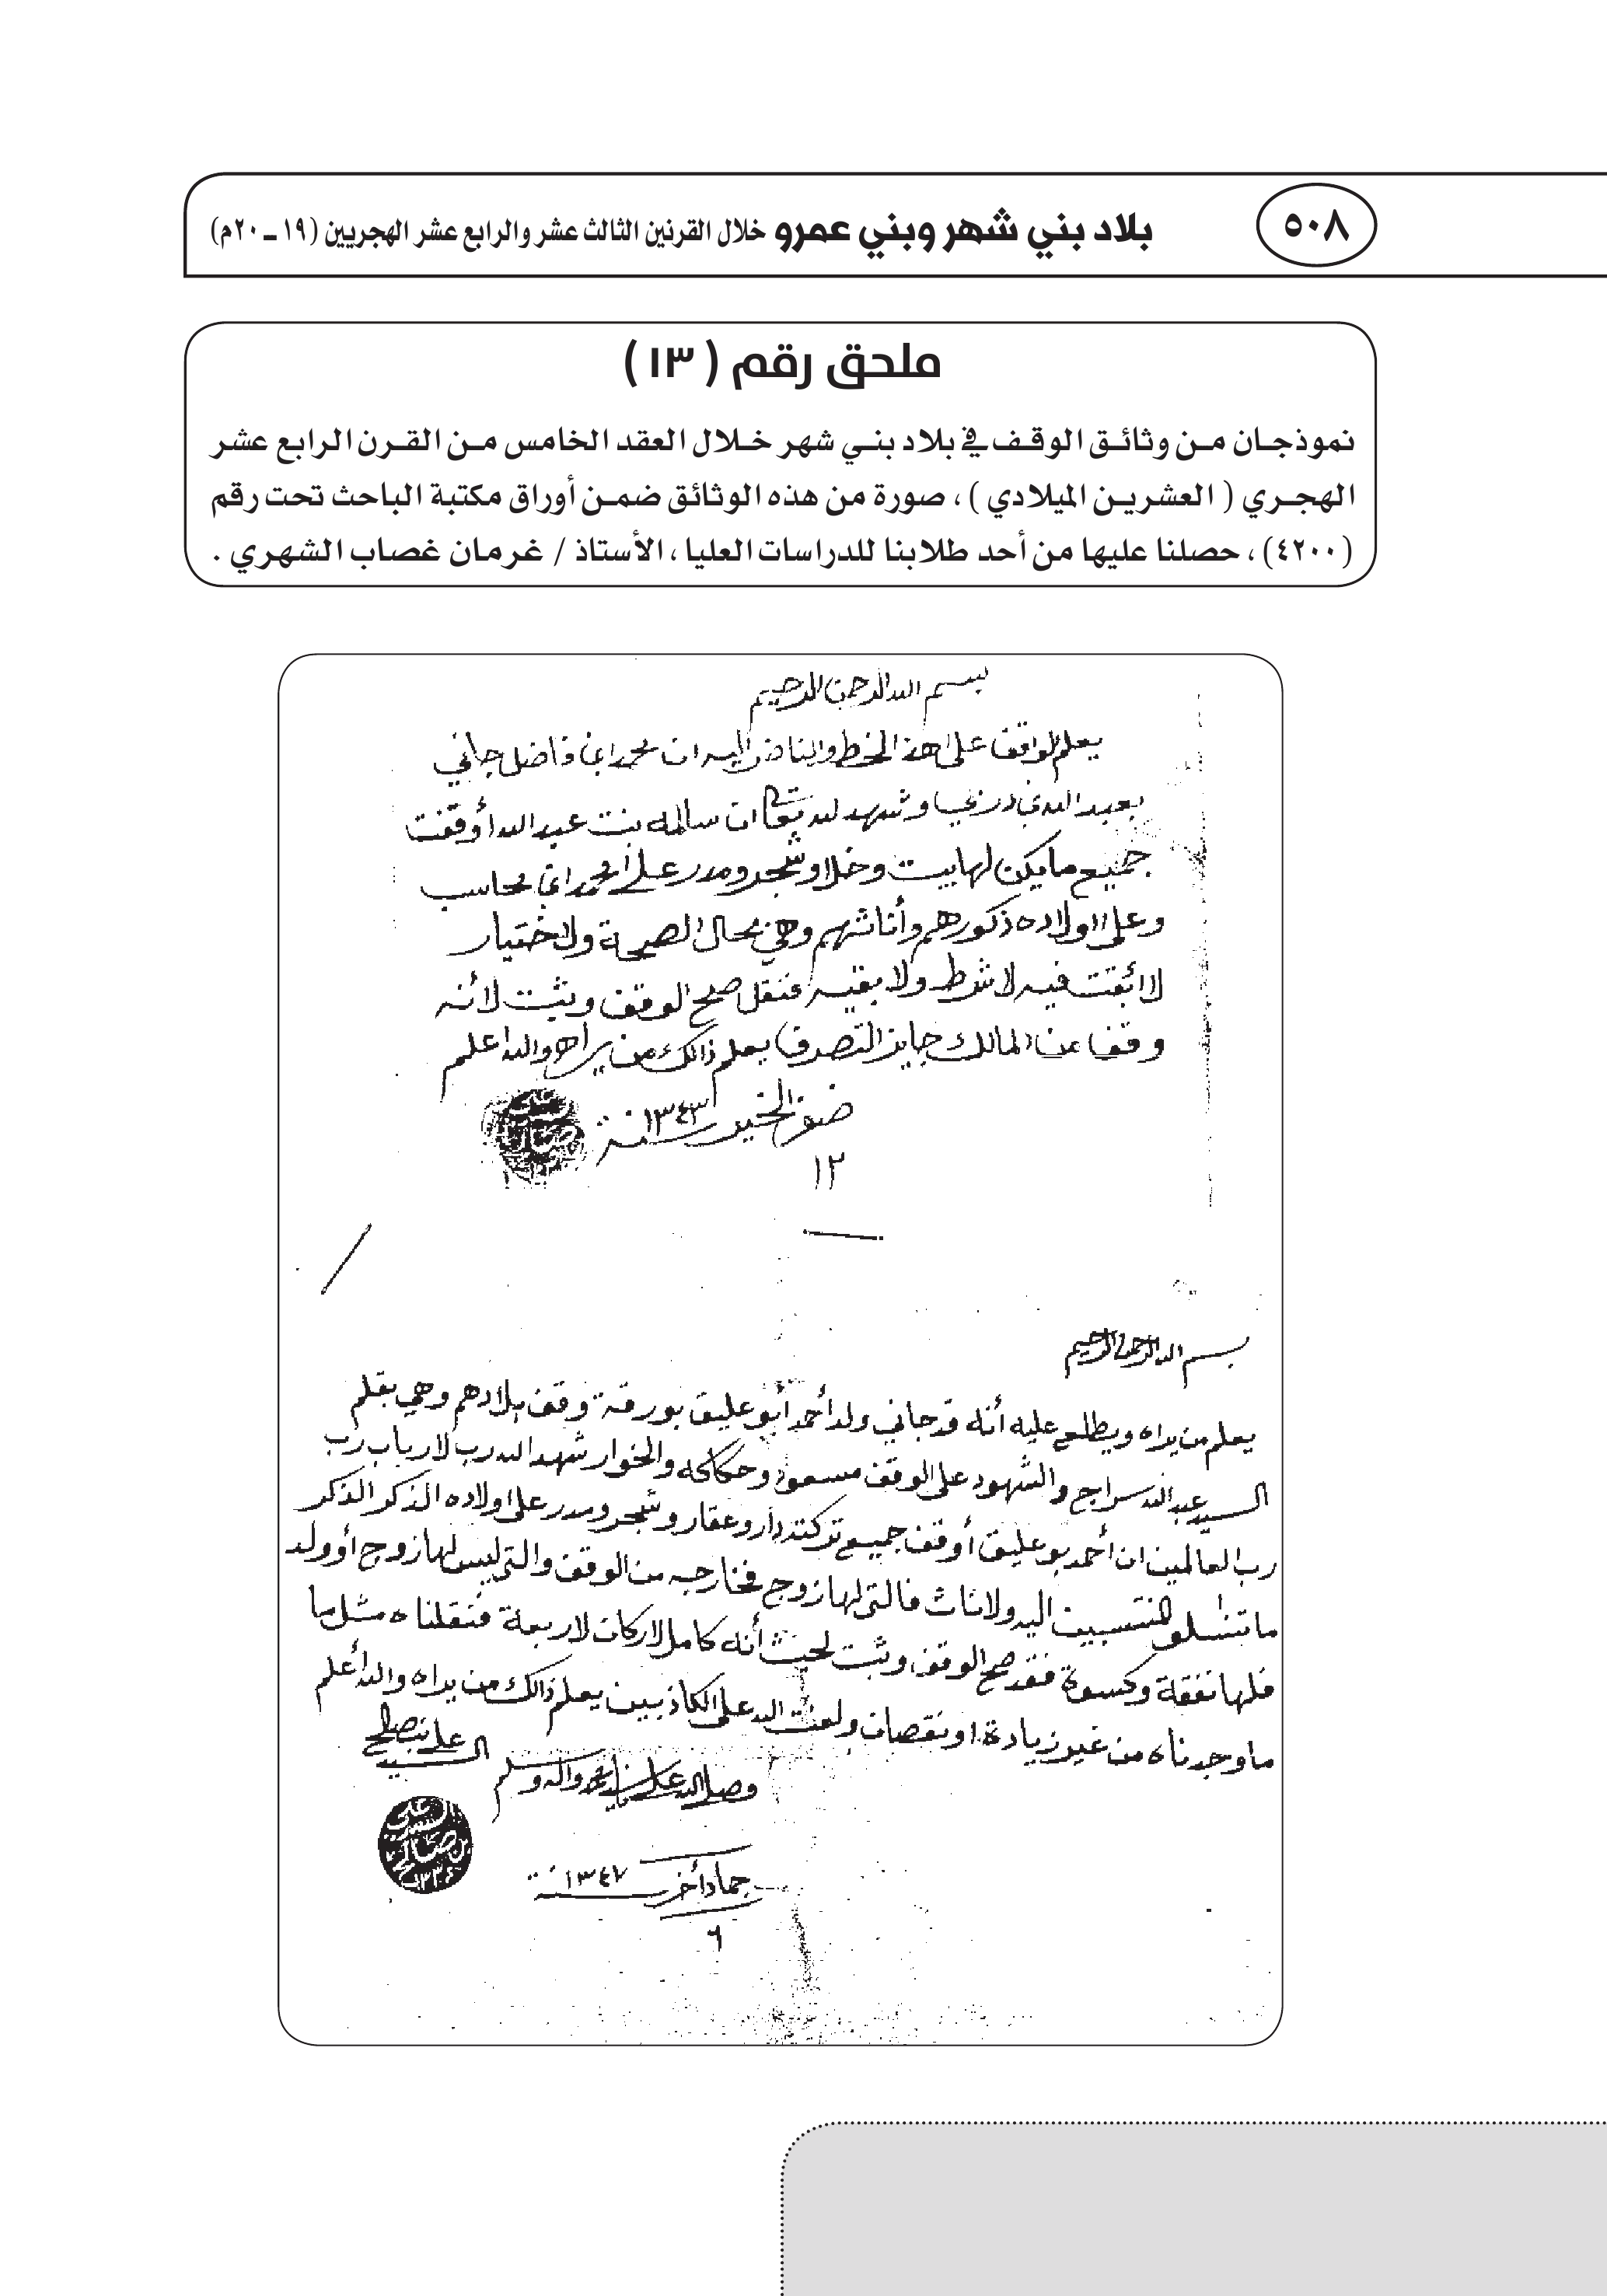 ٥٠٨
بلاد بني شهر وبني عمرو خلال القرنين الثالث عشر والرابع عشر الهجريين (١٩ ـ ٢٠م)
ملحق رقم ( ١٣ )
نموذجـان مـن وثائـق الوقـف في بلاد بنـي شهر خـلال العقد الخامس مـن القـرن الرابع عشر
الهجـري ( العشريـن الميلادي ) ، صورة من هذه الوثائق ضمـن أوراق مكتبة الباحث تحت رقم
(٤٢٠٠) ، حصلنا عليها من أحد طلابنا للدراسات العليا ، الأستاذ / غرمان غصاب الشهري .
بسم الله الرحمن الرحيم
يعلم الواقف على هذ الخط والناضر اليه ان محمد ابن فاضل جاني
وشهد لله ان سالمه بنت عبد الله أوقفت
جميع مايكن لها بيت وخلا وشجر ومدر على محمد ابن محاسب
وعلى اولاده ذكورهم وأناثهم وهي بحال الصحة ولاختيار
لا ائبقت فيه لا شرط ولا بقيه فنقل صح الوقف وثبت لأنه
وقف من المالك جايز التصرف يعلم ذالك من يراه والله اعلم
ضفر الخير سنة ١٣٤٣
١٢
بسم الله الرحمن الرحيم
يعلم من يراه ويطلع عليه أنه قد جاني ولد أحمد أبو عليق بورقة وقف بلادهم وهي بقلم
السيد عبد الله سراج والشهود على الوقف مسعود وحكاكه والخوار شهد الله رب لارباب رب
رب العالمين ان أحمد بو عليق أوقف جميع تركته دار وعقار وشجر ومدر على اولاده الذكر الذكر
ماتنسلو المنتسبين اليه ولاناث فالتي لها زوج فخارجه من الوقف والتي ليس لها زوج أو ولد
فلها نفقة وكسوة فقد صح الوقف وثبت لحيث أنه كامل لاركان لاربعة فنقلناه مثل ما
ماوجدناه من غير زيادة او نقصان ولعنت الله على الكاذبين يعلم ذالك من يراه والله أعلم
وصلى الله على سيدنا محمد واله وسلم
السيد علي بن صالح
جماد أخر سنة ١٣٤٧
٦